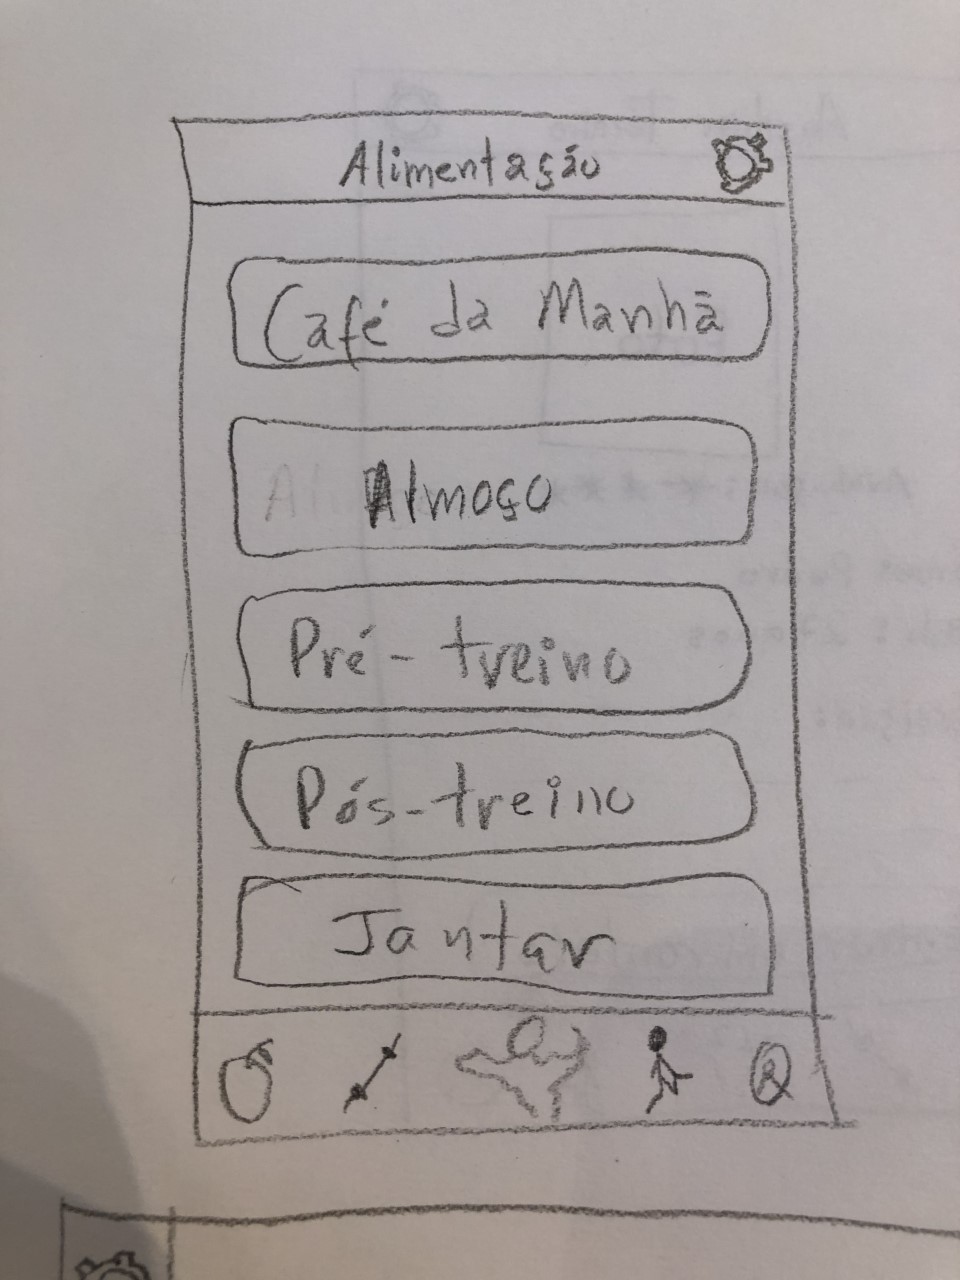 Alimentação
Café da Manhã
Almoço
Pré-treino
Pós-treino
Jantar